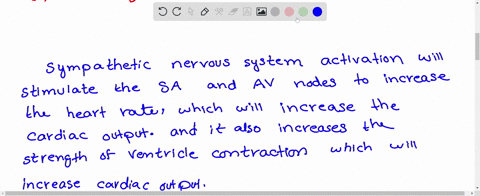 Sympathetic nervous system activation will
stimulate the SA and AV nodes to increase
the heart rate, which will increase the
cardiac output. and it also increases the
strength of ventricle contraction which will
increase cardiac output.